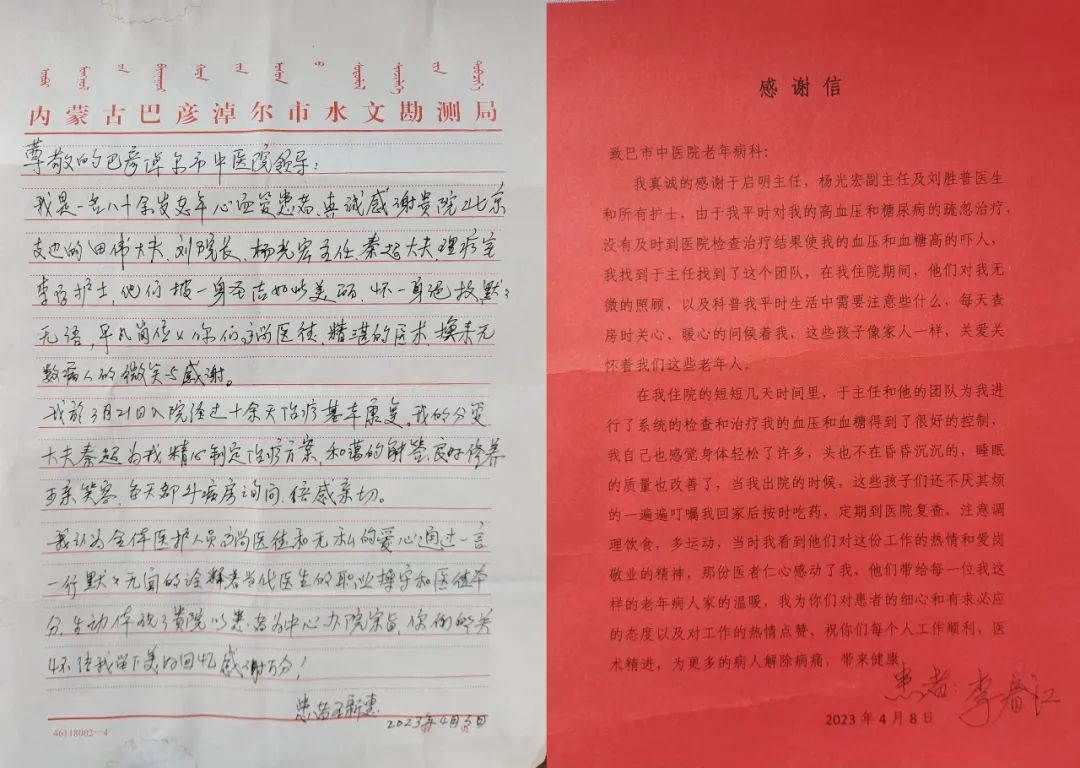 内蒙古巴彦淖尔市水文勘测局
尊敬的巴彦淖尔市中医院领导:
我是一名八十余岁老年心血管患者,真诚感谢贵院及北京
支边的田伟大夫、刘院长、杨光宏主任、秦超大夫理疗室
李 护士,他们披一身圣洁如此美丽,怀一身绝技,默々
无语,平凡岗位々你们高尚医德,精湛的医术,换来无
数病人的微笑与感谢。
我於3月21日入院经过十余天治疗基本康复。我的分管
大夫秦超为我精心制定治疗方案,和蔼的解答、良好修养
可亲笑容,每天都到病房询问,倍感亲切。
我认为全体医护人员高尚医德和无私的爱心通过一言
一行默々无闻的诠释者当代医生的职业操守和医德本
分,生动体现了贵院以患者为中心办院宗旨,你们的关
怀给我留下美好回忆感谢万分!
患者 王新惠
2023年4月3日
46118002—4
感谢信
致巴市中医院老年病科:
我真诚的感谢于启明主任,杨光宏副主任及刘胜普医生
和所有护士,由于我平时对我的高血压和糖尿病的疏忽治疗,
没有及时到医院检查治疗结果使我的血压和血糖高的吓人,
我找到于主任找到了这个团队,在我住院期间,他们对我无
微的照顾,以及科普我平时生活中需要注意些什么,每天查
房时关心、暖心的问侯着我,这些孩子像家人一样,关爱关
怀着我们这些老年人。
在我住院的短短几天时间里,于主任和他的团队为我进
行了系统的检查和治疗我的血压和血糖得到了很好的控制,
我自己也感觉身体轻松了许多,头也不在昏昏沉沉的,睡眠
的质量也改善了,当我出院的时候,这些孩子们还不厌其烦
的一遍遍叮嘱我回家后按时吃药,定期到医院复查,注意调
理饮食,多运动,当时我看到他们对这份工作的热情和爱岗
敬业的精神,那份医者仁心感动了我,他们带给每一位我这
样的老年病人家的温暖,我为你们对患者的细心和有求必应
的态度以及对工作的热情点赞,祝你们每个人工作顺利,医
术精进,为更多的病人解除病痛,带来健康
患者:李春江
2023年4月8日